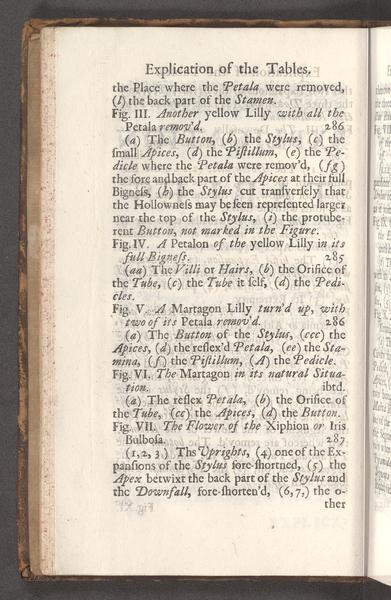 Explication of the Tables.
the Place where the Petala were removed,
(l) the back part of the Stamen.
Fig. III. Another yellow Lilly with all the
Petala remov'd. 286
(a) The Button, (b) the Stylus, (c) the
small Apices, (d) the Pistillum, (e) the Pe-
dicle where the Petala were remov'd, (fg)
the fore and back part of the Apices at their full
Bigness, (h) the Stylus cut transversely that
the Hollowness may be seen represented larger
near the top of the Stylus, (i) the protube-
rent Button, not marked in the Figure.
Fig. IV. A Petalon of the yellow Lilly in its
full Bigness. 285
(aa) The Villi or Hairs, (b) the Orifice of
the Tube, (c) the Tube it self, (d) the Pedi-
cles.
Fig. V. A Martagon Lilly turn'd up, with
two of its Petala remov'd. 286
(a) The Button of the Stylus, (ccc) the
Apices, (d) the reflex'd Petala, (ee) the Sta-
mina, (f) the Pistillum, (A) the Pedicle.
Fig. VI. The Martagon in its natural Situa-
tion. ibtd.
(a) The reflex Petala, (b) the Orifice of
the Tube, (cc) the Apices, (d) the Button.
Fig. VII. The Flower of the Xiphion or Iris
Bulbosa. 287
(1, 2, 3) Ths Uprights, (4) one of the Ex-
pansions of the Stylus fore-shortned, (5) the
Apex betwixt the back part of the Stylus and
the Downfall, fore-shorten'd, (6, 7,) the o-
ther